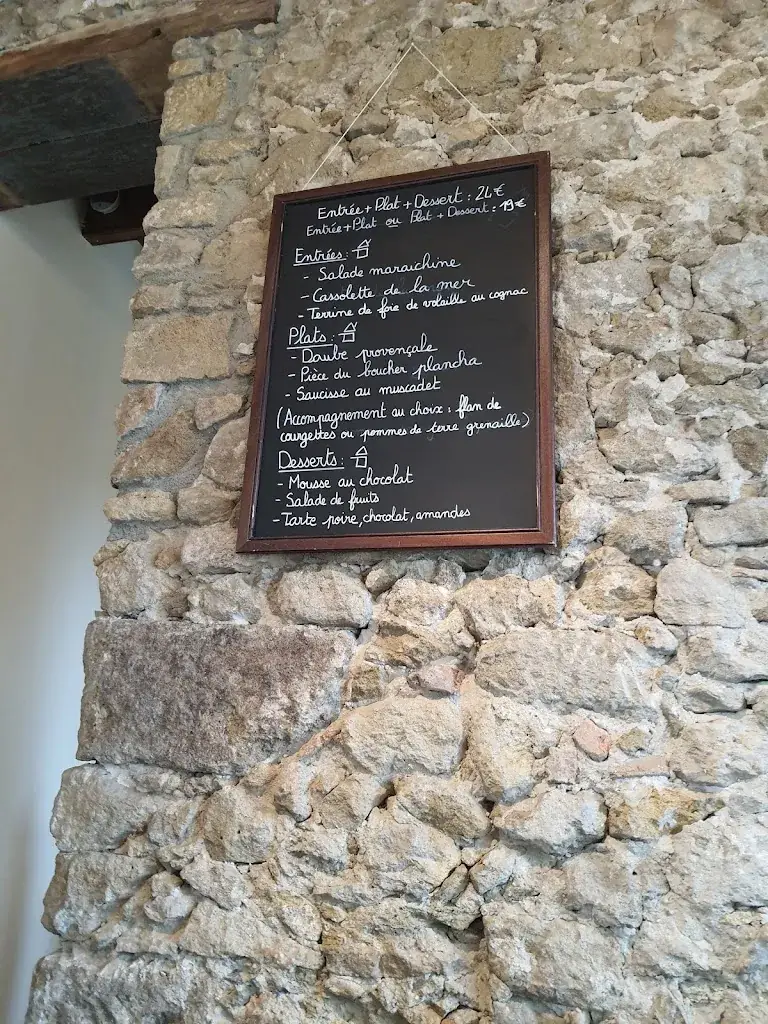 Entrée + Plat + Dessert : 24€
Entrée + Plat ou Plat + Dessert : 19€
Entrées :
- Salade maraichine
- Cassolette de la mer
- Terrine de foie de volaille au cognac
Plats :
- Daube provençale
- Pièce du boucher plancha
- Saucisse au muscadet
(Accompagnement au choix : flan de
courgettes ou pommes de terre grenaille)
Desserts :
- Mousse au chocolat
- Salade de fruits
- Tarte poire, chocolat, amandes